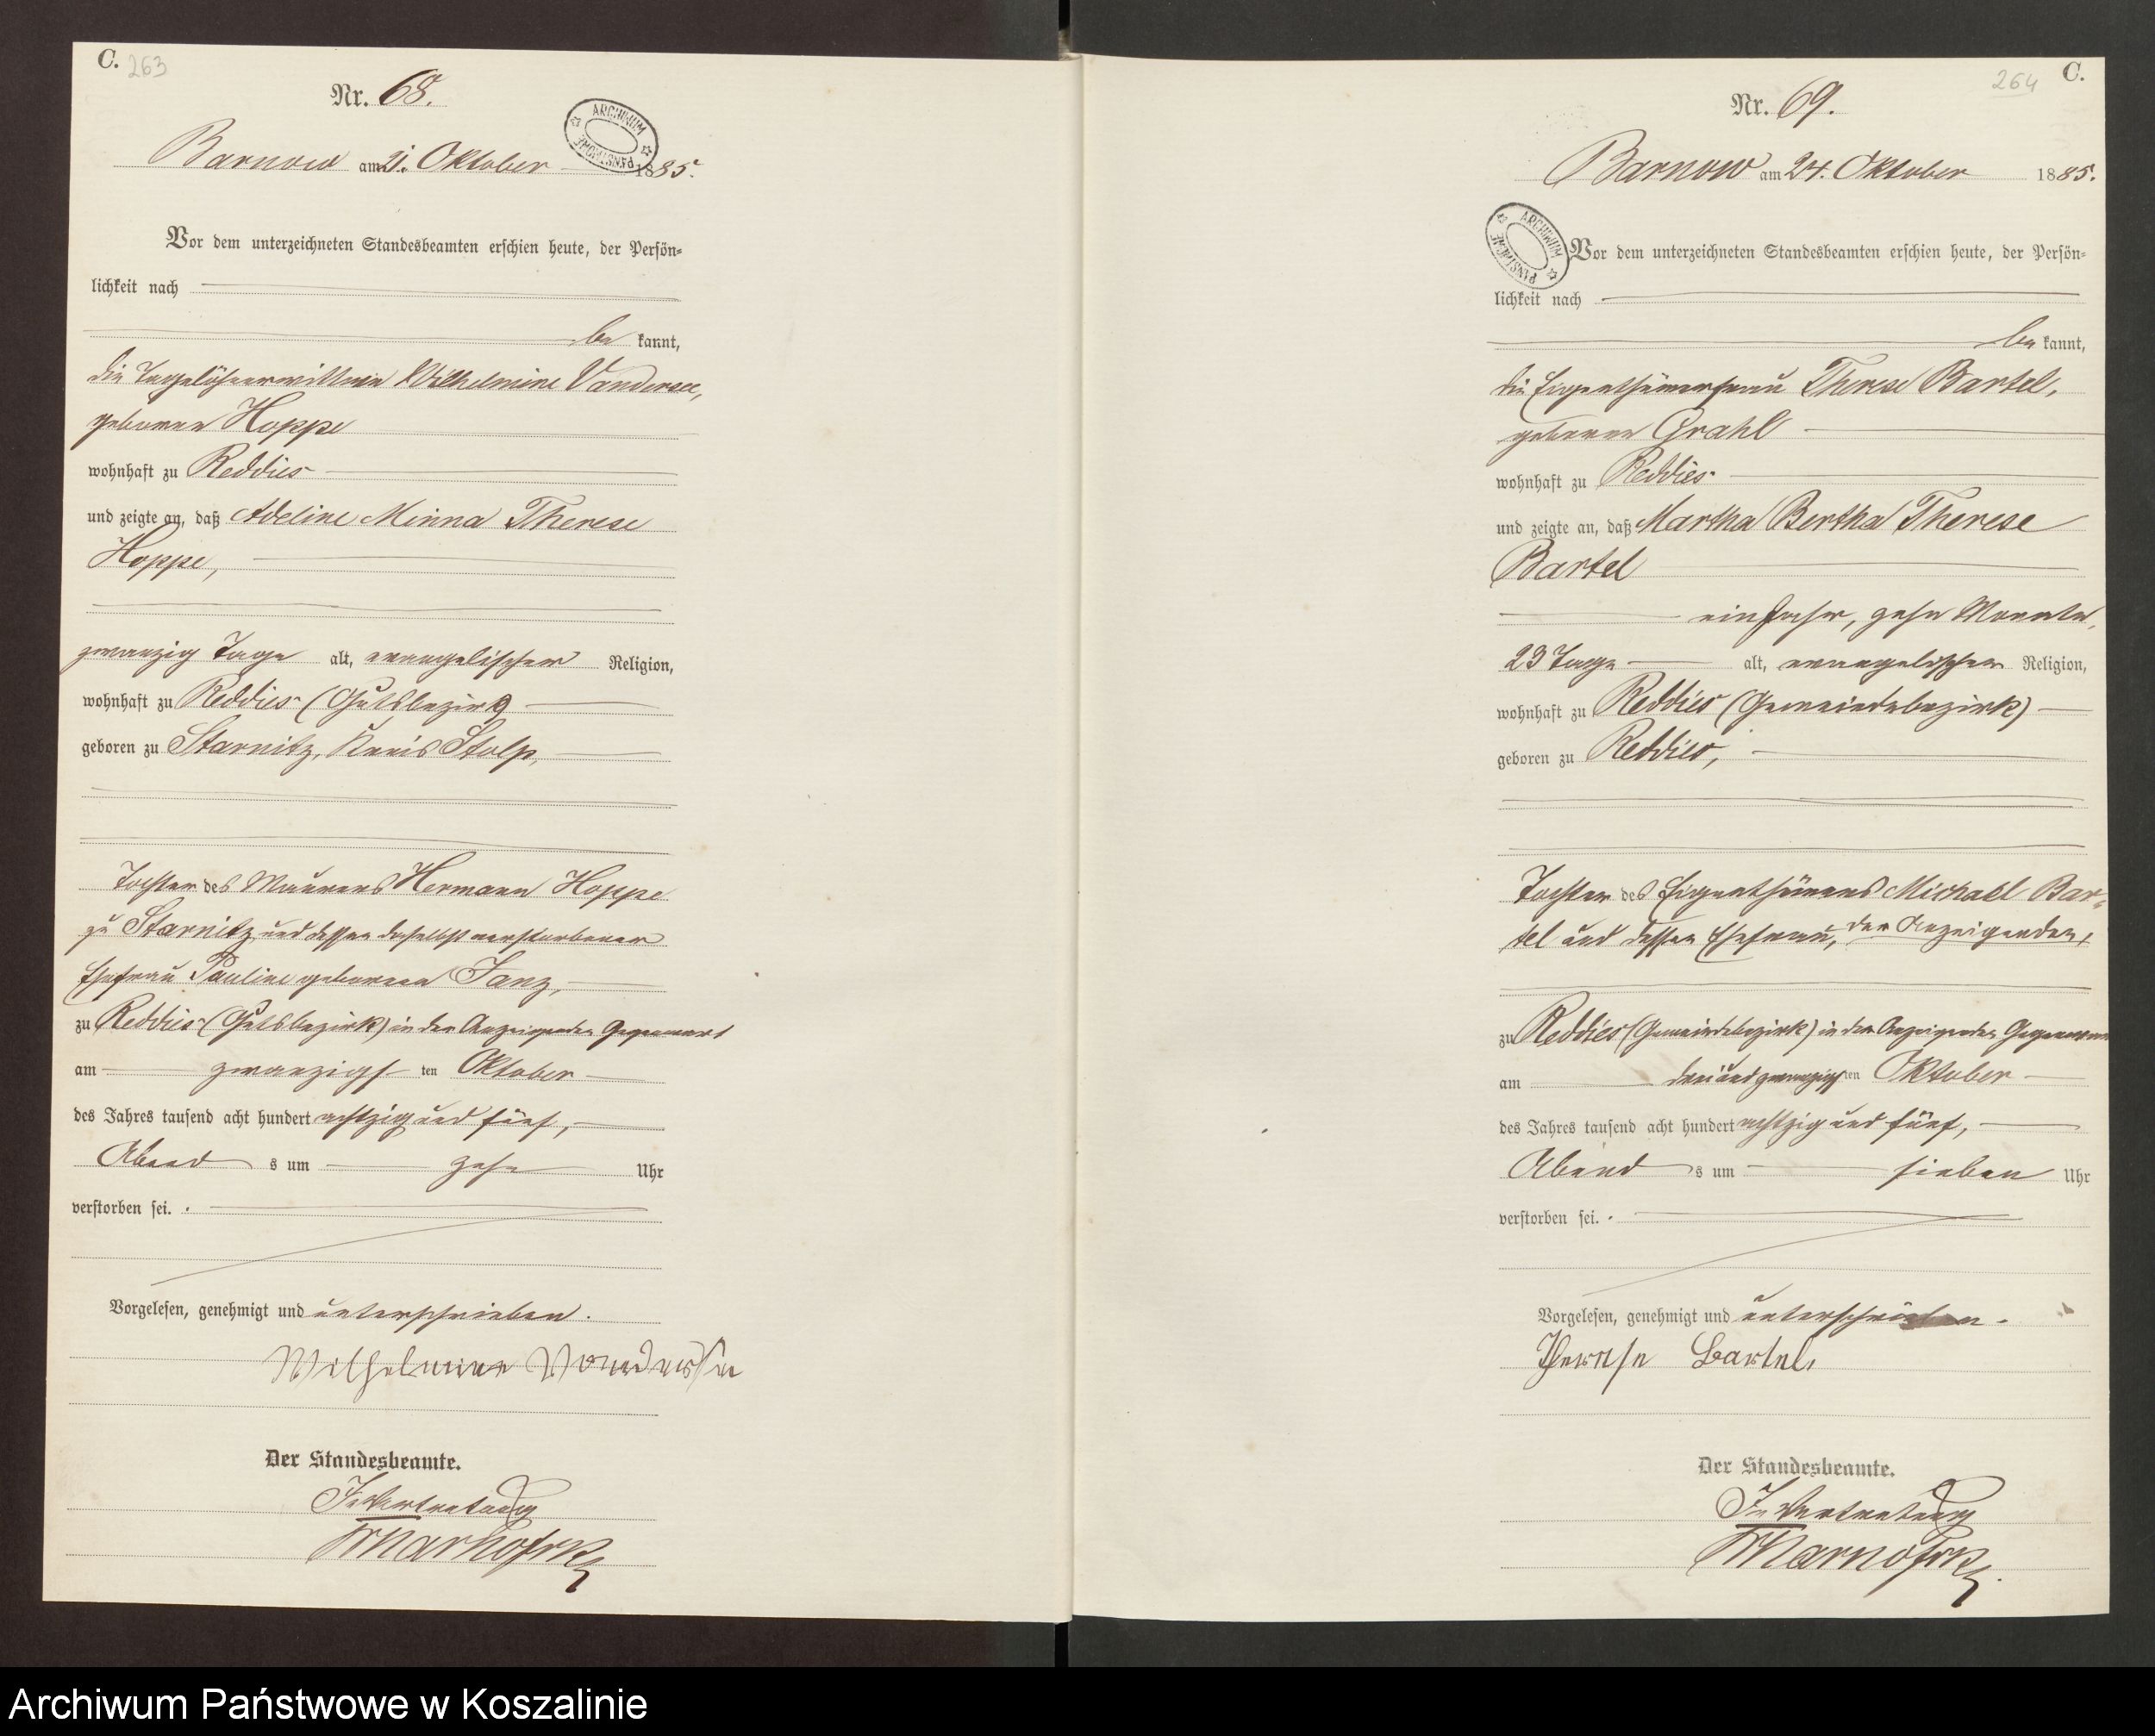 C. 263
Nr. 68.
ARCHIWUM PAŃSTWOWE
Barnow am 21. Oktober 1885.
Vor dem unterzeichneten Standesbeamten erschien heute, der Persön-
lichkeit nach
be kannt,
die Tagelöhnerwittwe Wilhelmine Vandersee,
geborene Hoppe
wohnhaft zu Reddies
und zeigte an, daß Adeline Minna Therese
Hoppe,
zwanzig Tage alt, evangelischer Religion,
wohnhaft zu Reddies (Gutsbezirk)
geboren zu Starnitz, Kreis Stolp,
Tochter des Maurers Hermann Hoppe
zu Starnitz und dessen daselbst verstorbener
Ehefrau Pauline geborenen Janz,
zu Reddies (Gutsbezirk) in der Anzeigenden Gegenwart
am zwanzigs ten Oktober
des Jahres tausend acht hundert achtzig und fünf,
Abend s um zehn Uhr
verstorben sei.
Vorgelesen, genehmigt und unterschrieben.
Wilhelmine
Der Standesbeamte.
In Vertretung
C. 264
Nr. 69.
Barnow am 24. Oktober 1885.
ARCHIWUM PAŃSTWOWE
Vor dem unterzeichneten Standesbeamten erschien heute, der Persön-
lichkeit nach
be kannt,
die Eigenthümerfrau Therese Bartel,
geborene Grahl
wohnhaft zu Reddies
und zeigte an, daß Martha Bertha Therese
Bartel
ein Jahr, zehn Monate,
23 Tage alt, evangelischer Religion,
wohnhaft zu Reddies (Gemeindebezirk)
geboren zu Reddies,
Tochter des Eigenthümers Michael Bar-
tel und dessen Ehefrau, der Anzeigenden,
zu Reddies (Gemeindebezirk) in der Anzeigenden Gegenwart
am dreiundzwanzigsten Oktober
des Jahres tausend acht hundert achtzig und fünf,
Abend s um sieben Uhr
verstorben sei.
Vorgelesen, genehmigt und unterschrieben.
Therese Bartel,
Der Standesbeamte.
In Vertretung
Archiwum Państwowe w Koszalinie